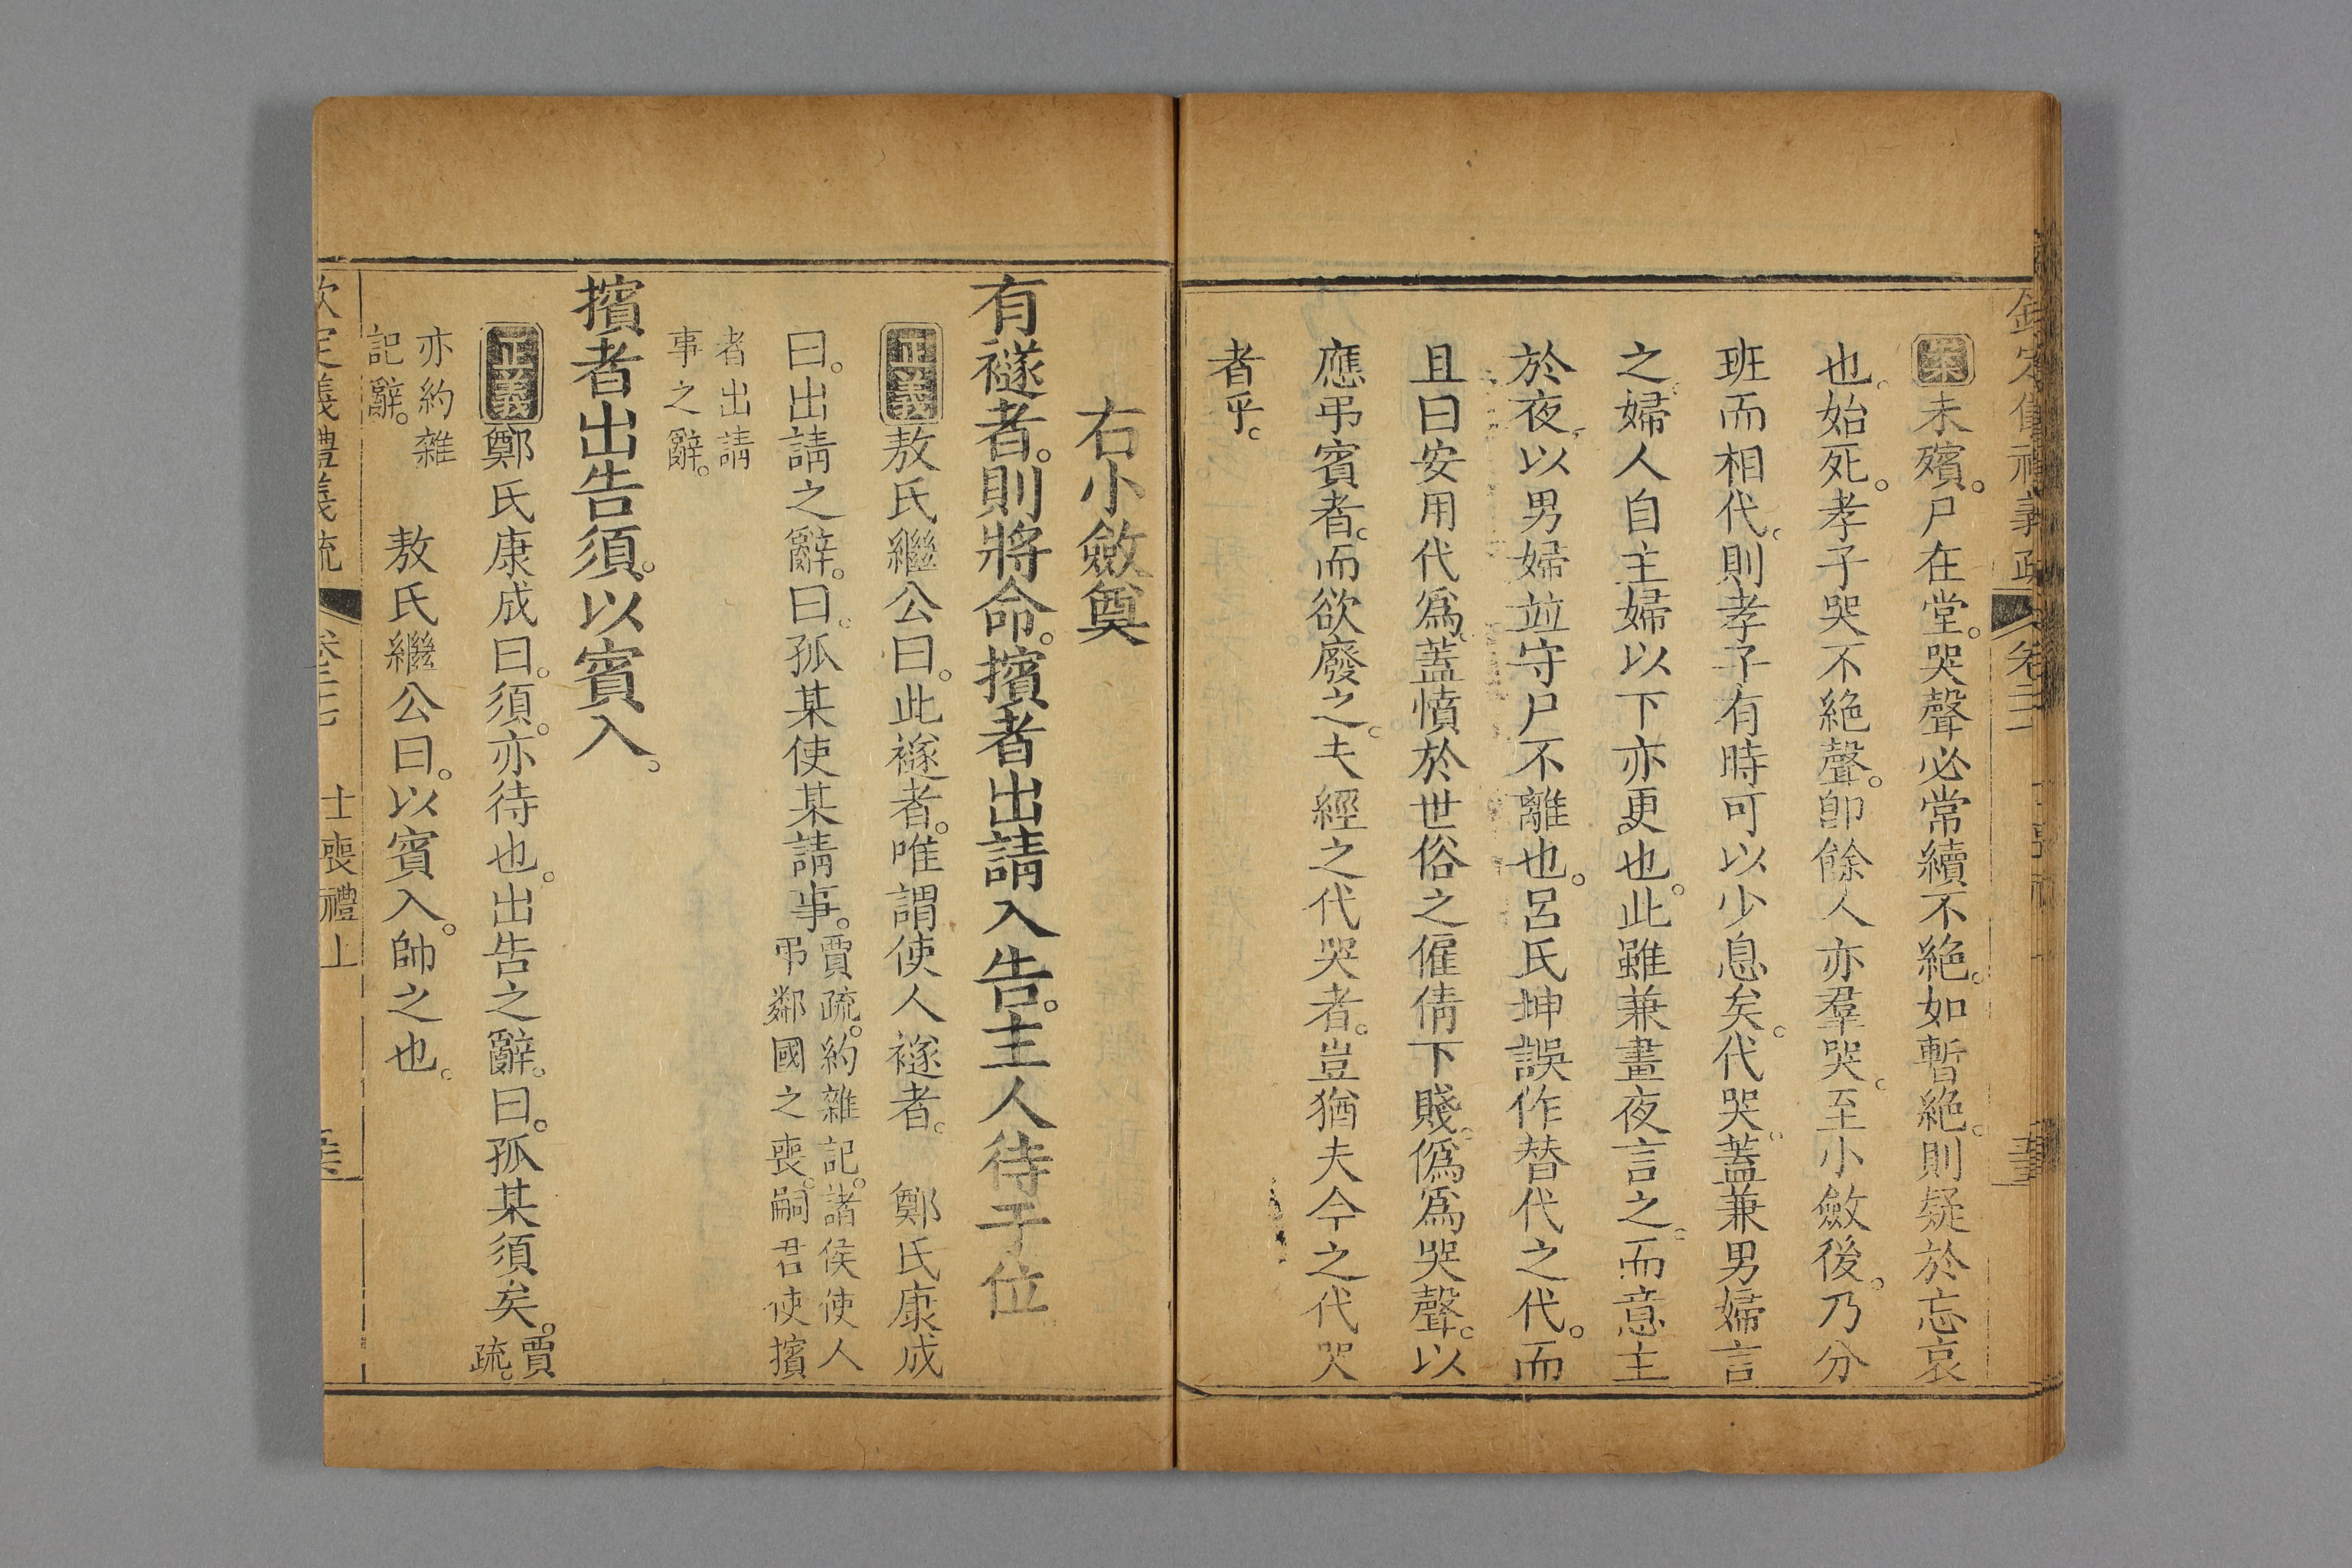 欽定儀禮義疏 卷二 士喪禮上
案未殯。尸在堂。哭聲必常續不絕。如暫絕。則疑於忘哀
也。始死。孝子哭不絕聲。卽餘人亦羣哭。至小斂後。乃分
班而相代。則孝子有時可以少息矣。代哭。蓋兼男婦言
之。婦人自主婦以下亦更也。此雖兼晝夜言之。而意主
於夜。以男婦竝守尸不離也。呂氏坤誤作替代之代。而
且曰安用代爲。蓋憤於世俗之僱倩下賤。僞爲哭聲。以
應弔賓者。而欲廢之。夫經之代哭者。豈猶夫今之代哭
者乎。
右小斂奠
有襚者。則將命。擯者出請入告。主人待于位
正義敖氏繼公曰。此襚者。唯謂使人襚者。 鄭氏康成
曰。出請之辭。曰。孤某使某請事。賈疏。約雜記。諸侯使人
弔鄰國之喪。嗣君使擯
者出請
事之辭。
擯者出告須。以賓入。
正義鄭氏康成曰。須。亦待也。出告之辭。曰。孤某須矣。賈
疏。
亦約雜
記辭。 敖氏繼公曰。以賓入。帥之也。
欽定義禮義疏 卷二十七 士喪禮上